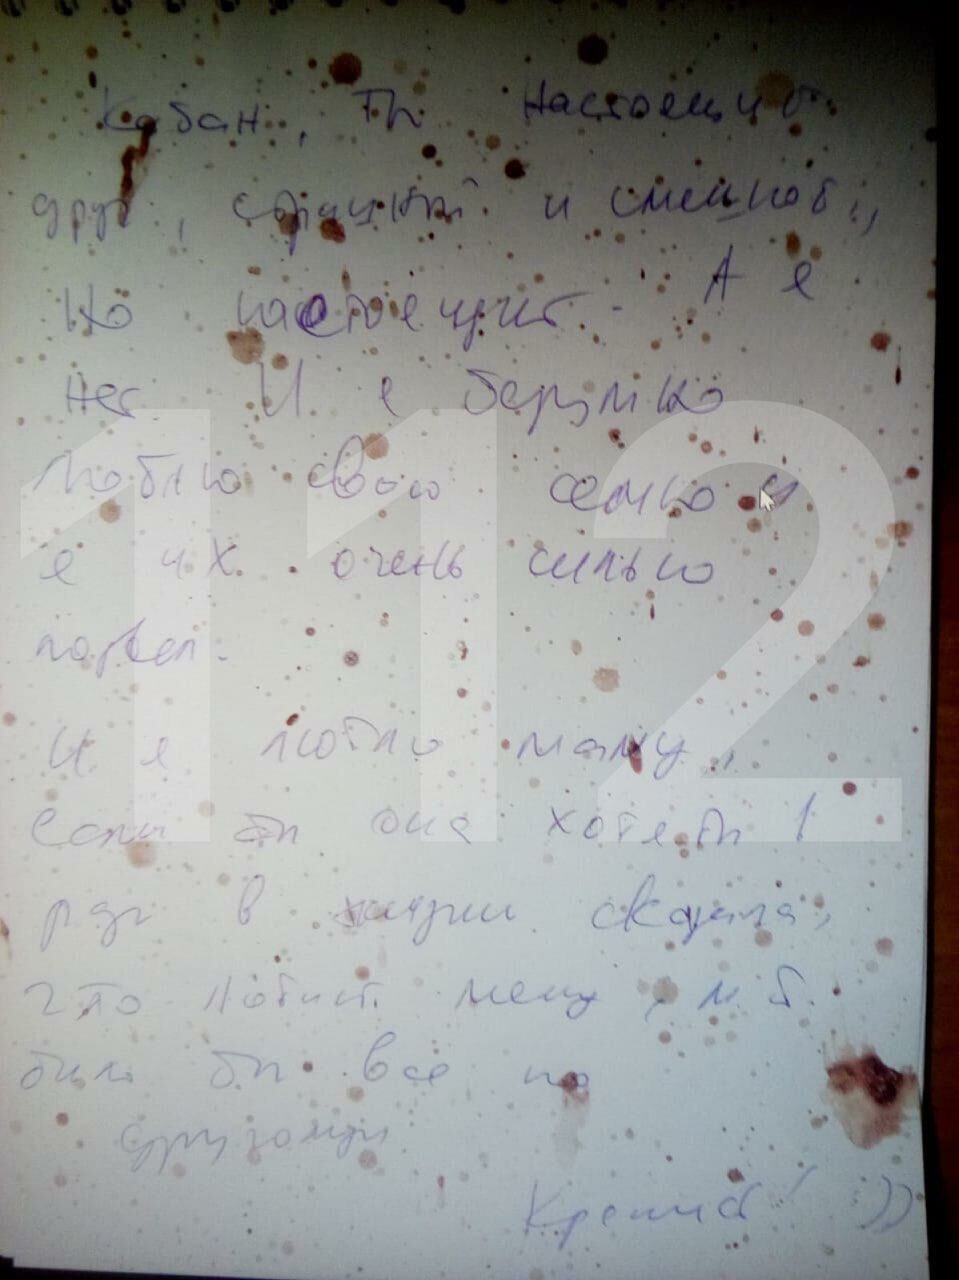 Кабан, ты настоещий
друг, страшный и смешной,
но настоещий. А я
нет И я безумно
люблю свою семью и
я их очень сильно
подвел.
И я люблю маму,
если бы она хотябы 1
раз в жизни сказала,
что любит меня, м.б.
было бы все по
другому
112